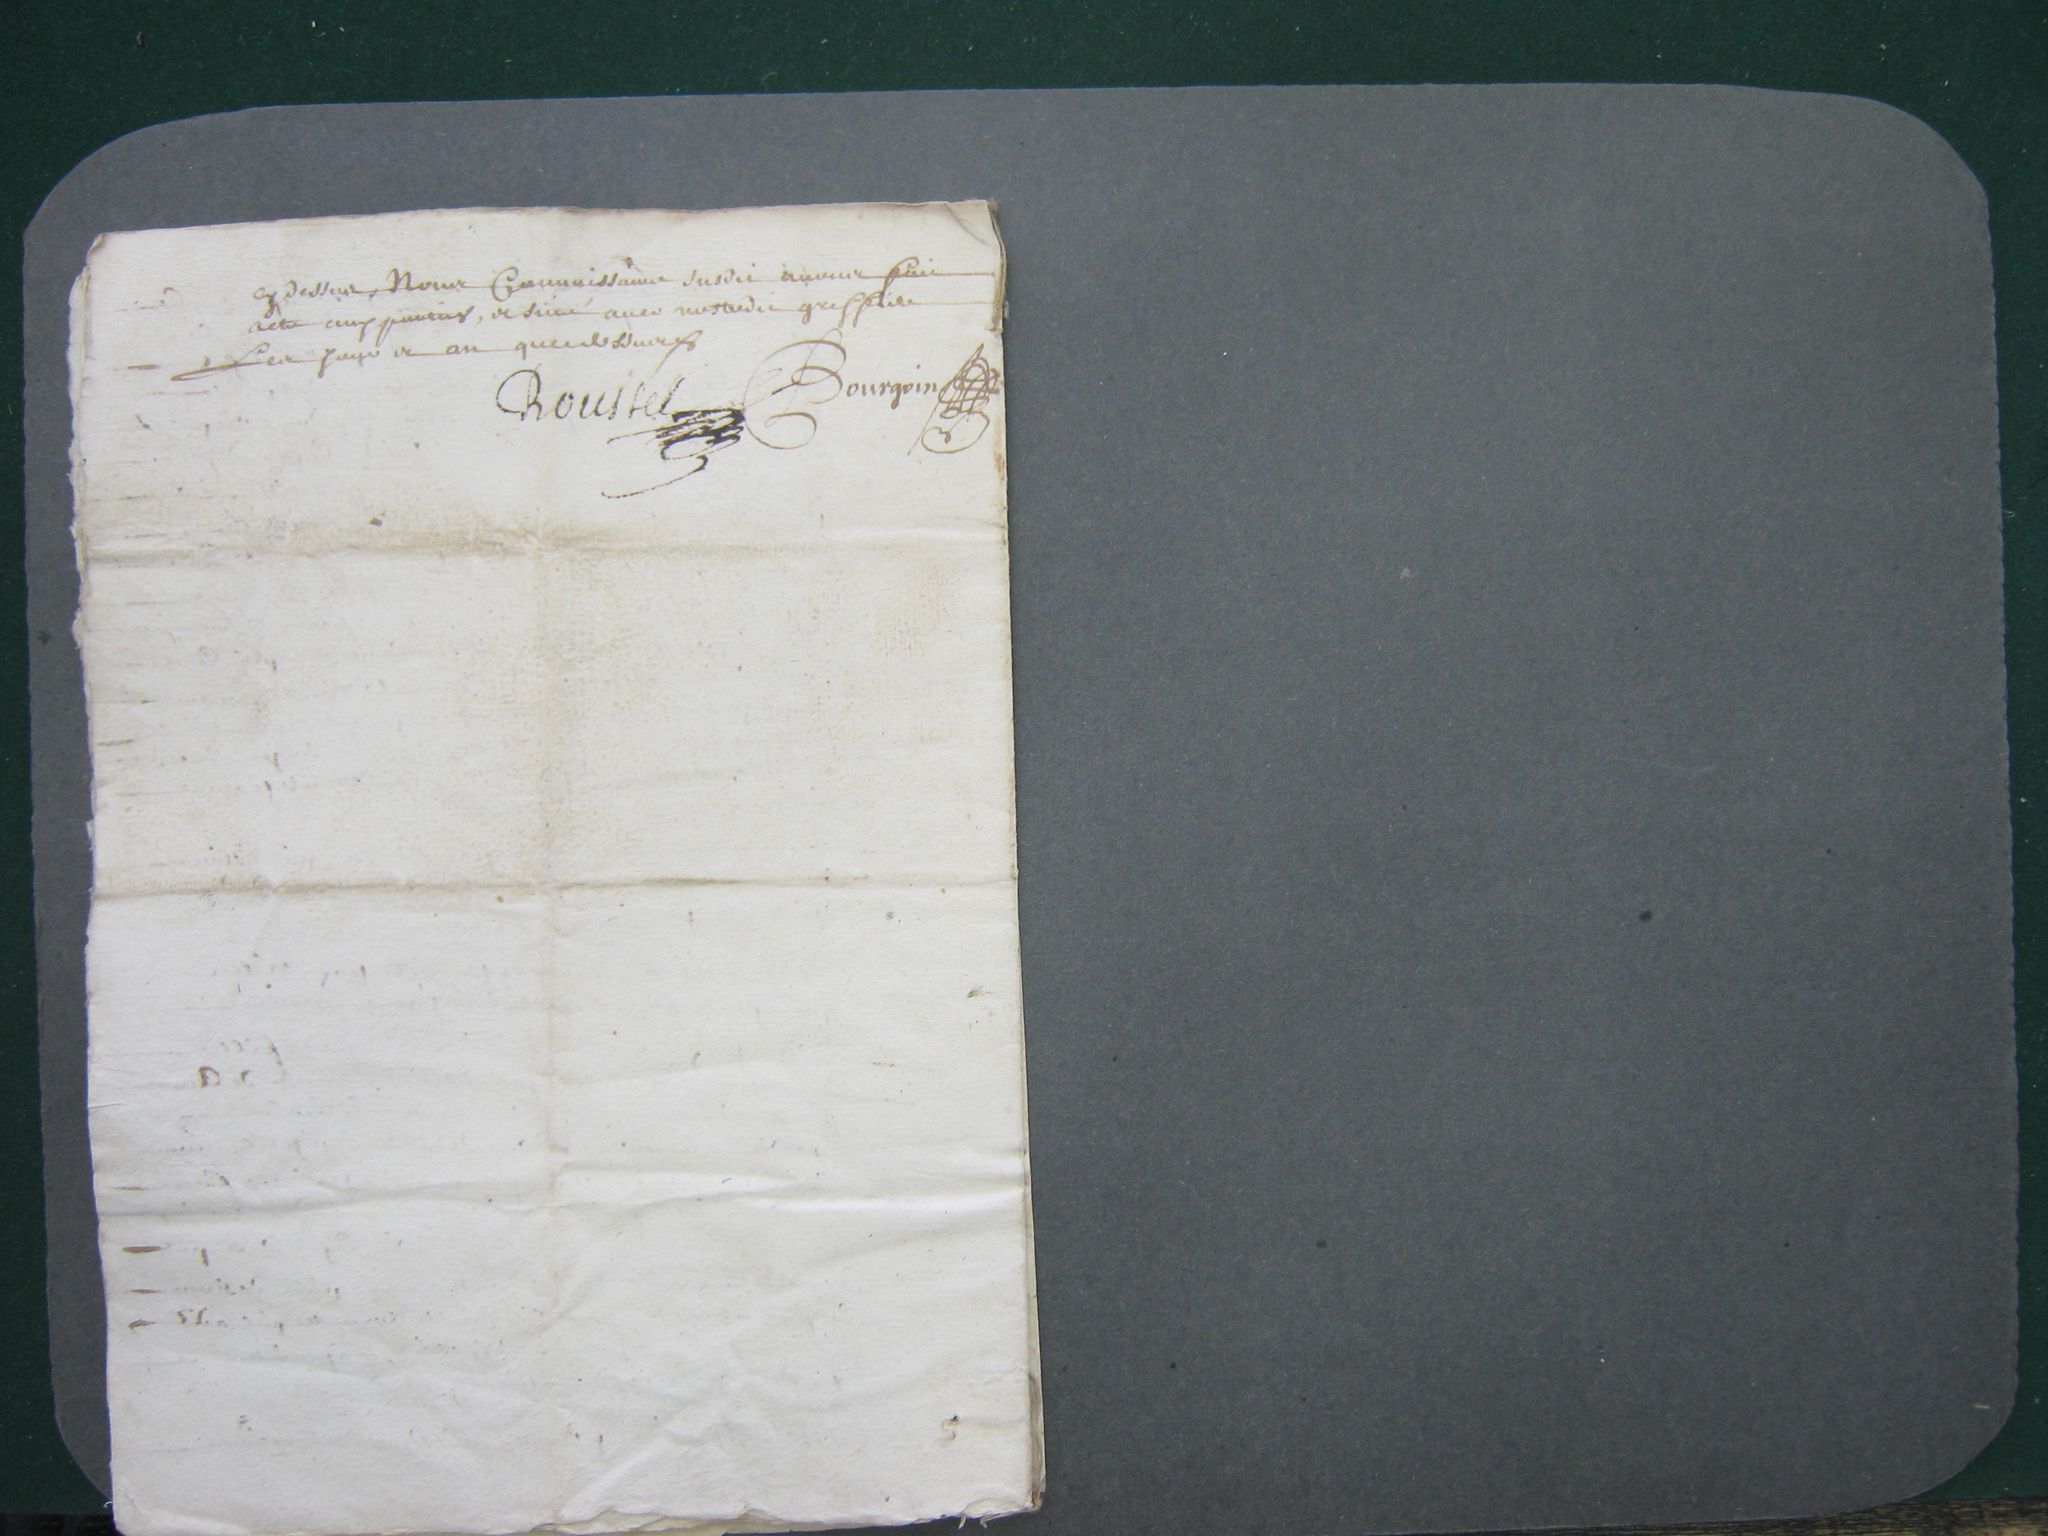 cy dessus, Nous Commissaire susdit avons fait
acte aux parties, et signé avec nostredit greffier
Les jour et an que dessus
Roustel Bourgoin